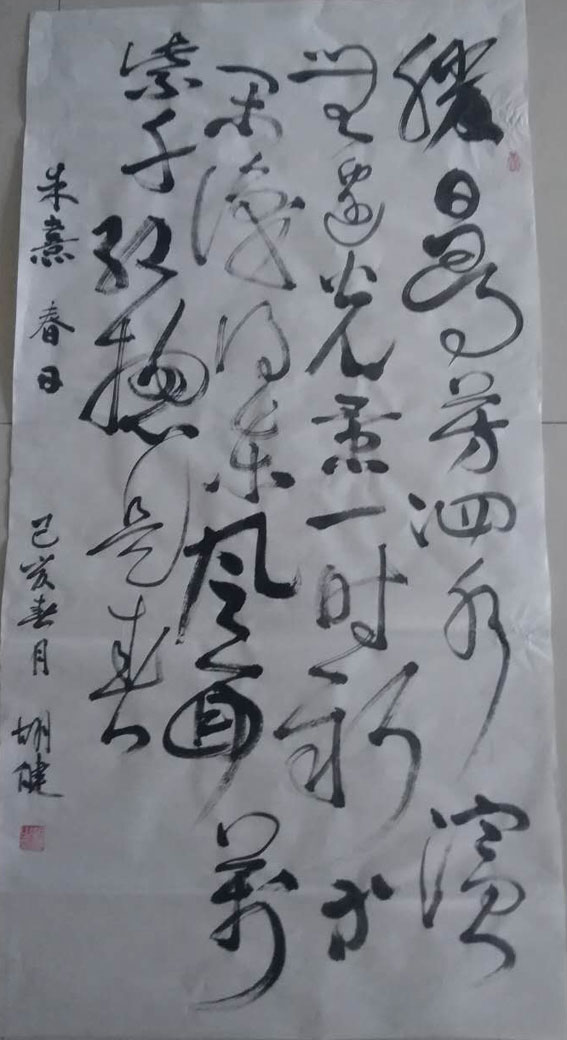 勝日尋芳泗水濱
無邊光景一时新等
閑識得東風面萬
紫千紅總是春
朱熹 春日 己亥春月 胡健